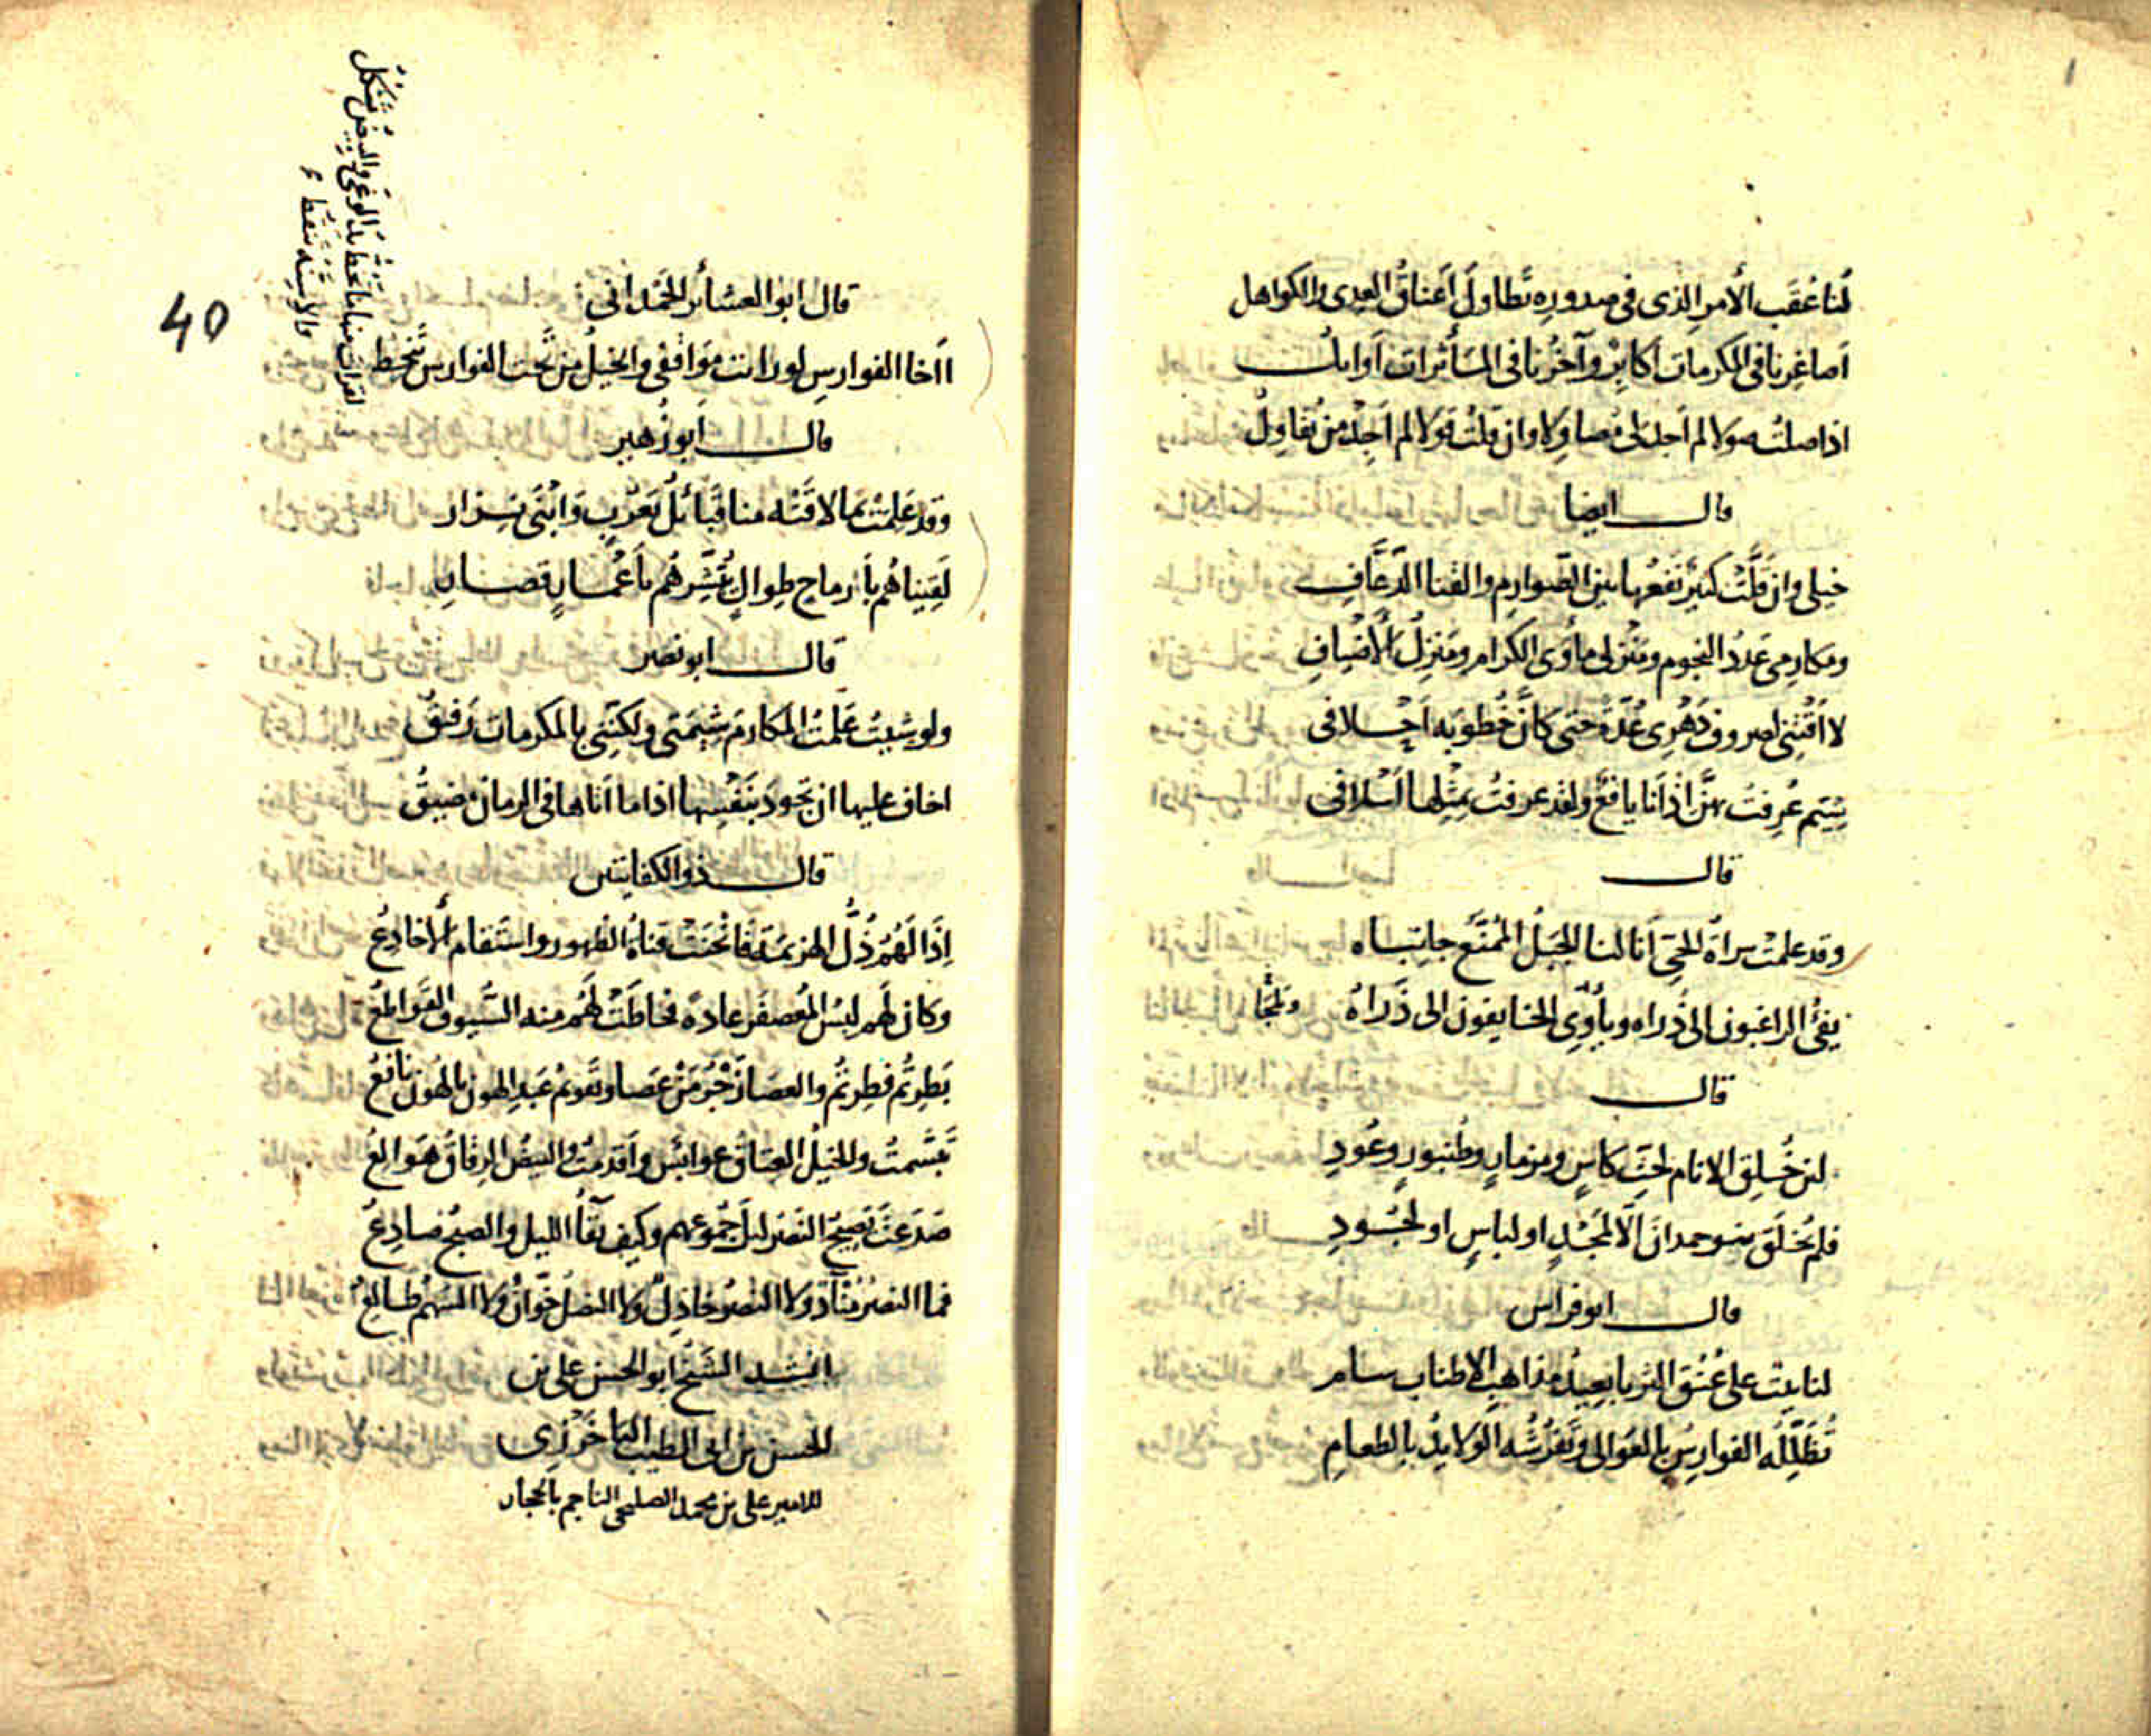 لنا عُقَب الأمر الذى فى صدوره تطاول أعناق العدى والكواهل
أصاغرنا فى المكرمات أكابر وآخرنا فى المأثرات أوائل
اذا صلت صولا لم أجد لى مصاولا وان قلت قولا لم أجد من يقاول
قال ايضا
خيلى وان قلّت كثير نفعها بين الصوارم والقنا الرعّاف
ومكارمى عدد النجوم ومنزلى مأوى الكرام ومنزل الأضياف
لا أقتنى لصروف دهرى عُدّة حتى كأن خطوبه أحلافى
شيم عرفت بهن اذ أنا يافع ولقد عرفت بمثلها أسلافى
قال
وقد علمت سراة الحى أنا لنا الجبل الممنّع جانباه
يفىء الراغبون الى ذراه ويأوى الخايفون الى ذراه
قال
لئن خلق الانام لحث كاس ومزمار وطنبور وعود
فلم يخلق بنو حمدان الا لمجد او لباس او لجود
قال ابو فراس
لنا بيت على عنق الثريا بعيد مذاهب الاطناب سامر
تظلّله الفوارس بالعوالى وتفرشه الولايد بالطعام
1
قال ابو العشائر الحمدانى
أاخا الفوارس لو رايت مواقفى والخيل من تحت الفوارس تنحط
لقرأت منها ما تخط يد الوغى والبيض تشكل
والأسنة تنقط
قال ابو زهير
وقد علمت بما لاقته منا قبائل يعرب وابنى نزار
لقيناهم بأرماح طوال تبشرهم بأعمار قصار
قال ابو نصر
ولو شيت علمت المكارم شيمتى ولكننى بالمكرمات رفيق
اخاف عليها ان تجود بنفسها اذا ما أتاها فى الزمان مضيق
قال ذو الكفايتين
اذا لهم ذل الهزيمة فانحنت قناة الظهور واستقام الأخادع
وكان لهم لبس المعصفر عادة فخاطت لهم منه السيوف القواطع
بطرتم فطرتم والعصا زجر من عصا وتقويم عبد الهون بالهون نافع
تبسمت والخيل العتاق عوابس وأقدمت والبيض الرقاق هوالع
صدعت بصبح النصر ليل جموعهم وكيف بقاء الليل والصبح صادع
فما النصر منآد ولا النصر خاذل ولا النصل خوان ولا السهم طالع
انشد الشيخ ابو الحسن على بن
الحسن بن ابى الطيب الباخرزى
للامير على بن محمد الصليحى الناجم بالحجاز
40